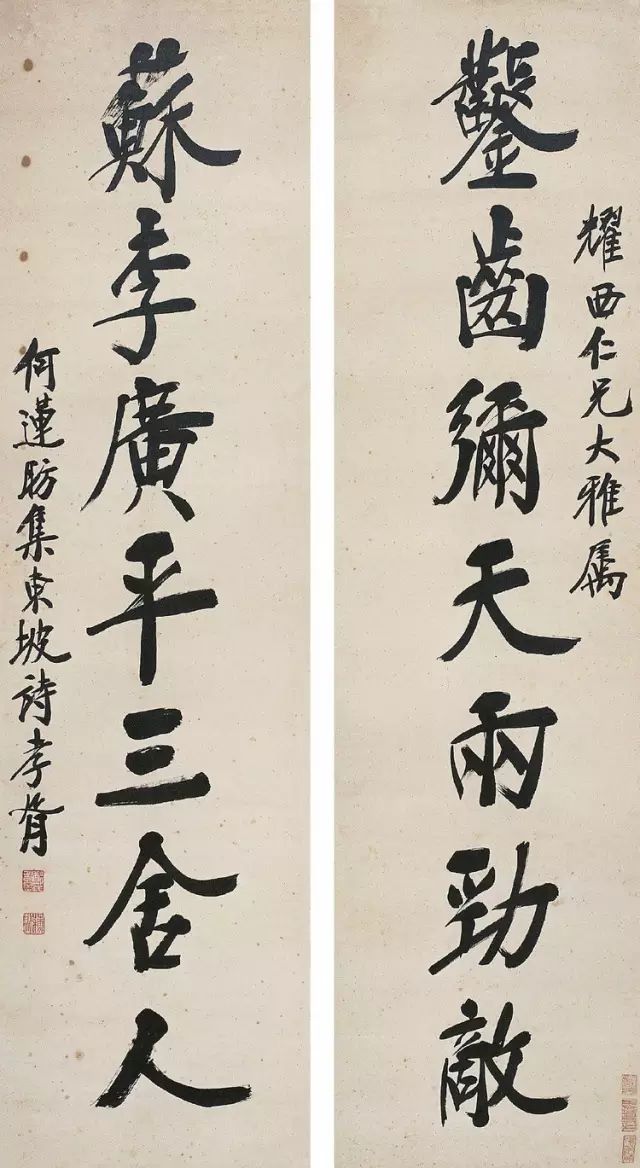 耀西仁兄大雅屬
鑿齒彌天兩勁敵
蘇李廣平三舍人
何蓮昉集東坡詩孝胥